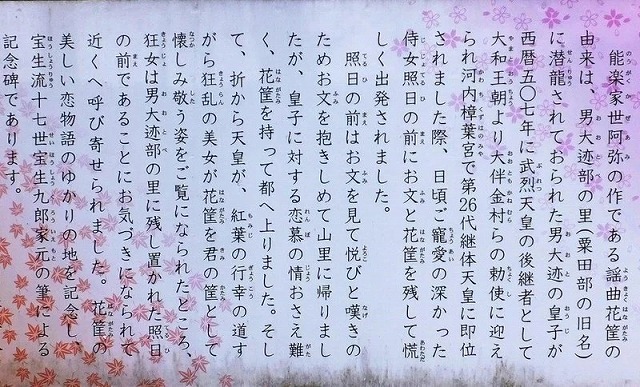 能楽家世阿弥の作である謡曲花筐の
由来は、男大迹部の里(粟田部の旧名)
に潜龍されておられた男大迹の皇子が
西暦五〇七年に武烈天皇の後継者として
大和王朝より大伴金村らの勅使に迎え
られ河内樟葉宮で第26代継体天皇に即位
されました際、日頃ご寵愛の深かった
侍女照日の前にお文と花筐を残して慌
しく出発されました。
照日の前はお文を見て悦びと嘆きの
ためお文を抱きしめて山里に帰りまし
たが、皇子に対する恋慕の情おさえ難
く、花筐を持って都へ上りました。そし
て、折から天皇が、紅葉の行幸の道す
がら狂乱の美女が花筐を君の筐として
懐しみ敬う姿をご覧になられたところ、
狂女は男大迹部の里に残し置かれた照日
の前であることにお気づきになられて
近くへ呼び寄せられました。花筐の
美しい恋物語のゆかりの地を記念し、
宝生流十七世宝生九郎家元の筆による
記念碑であります。